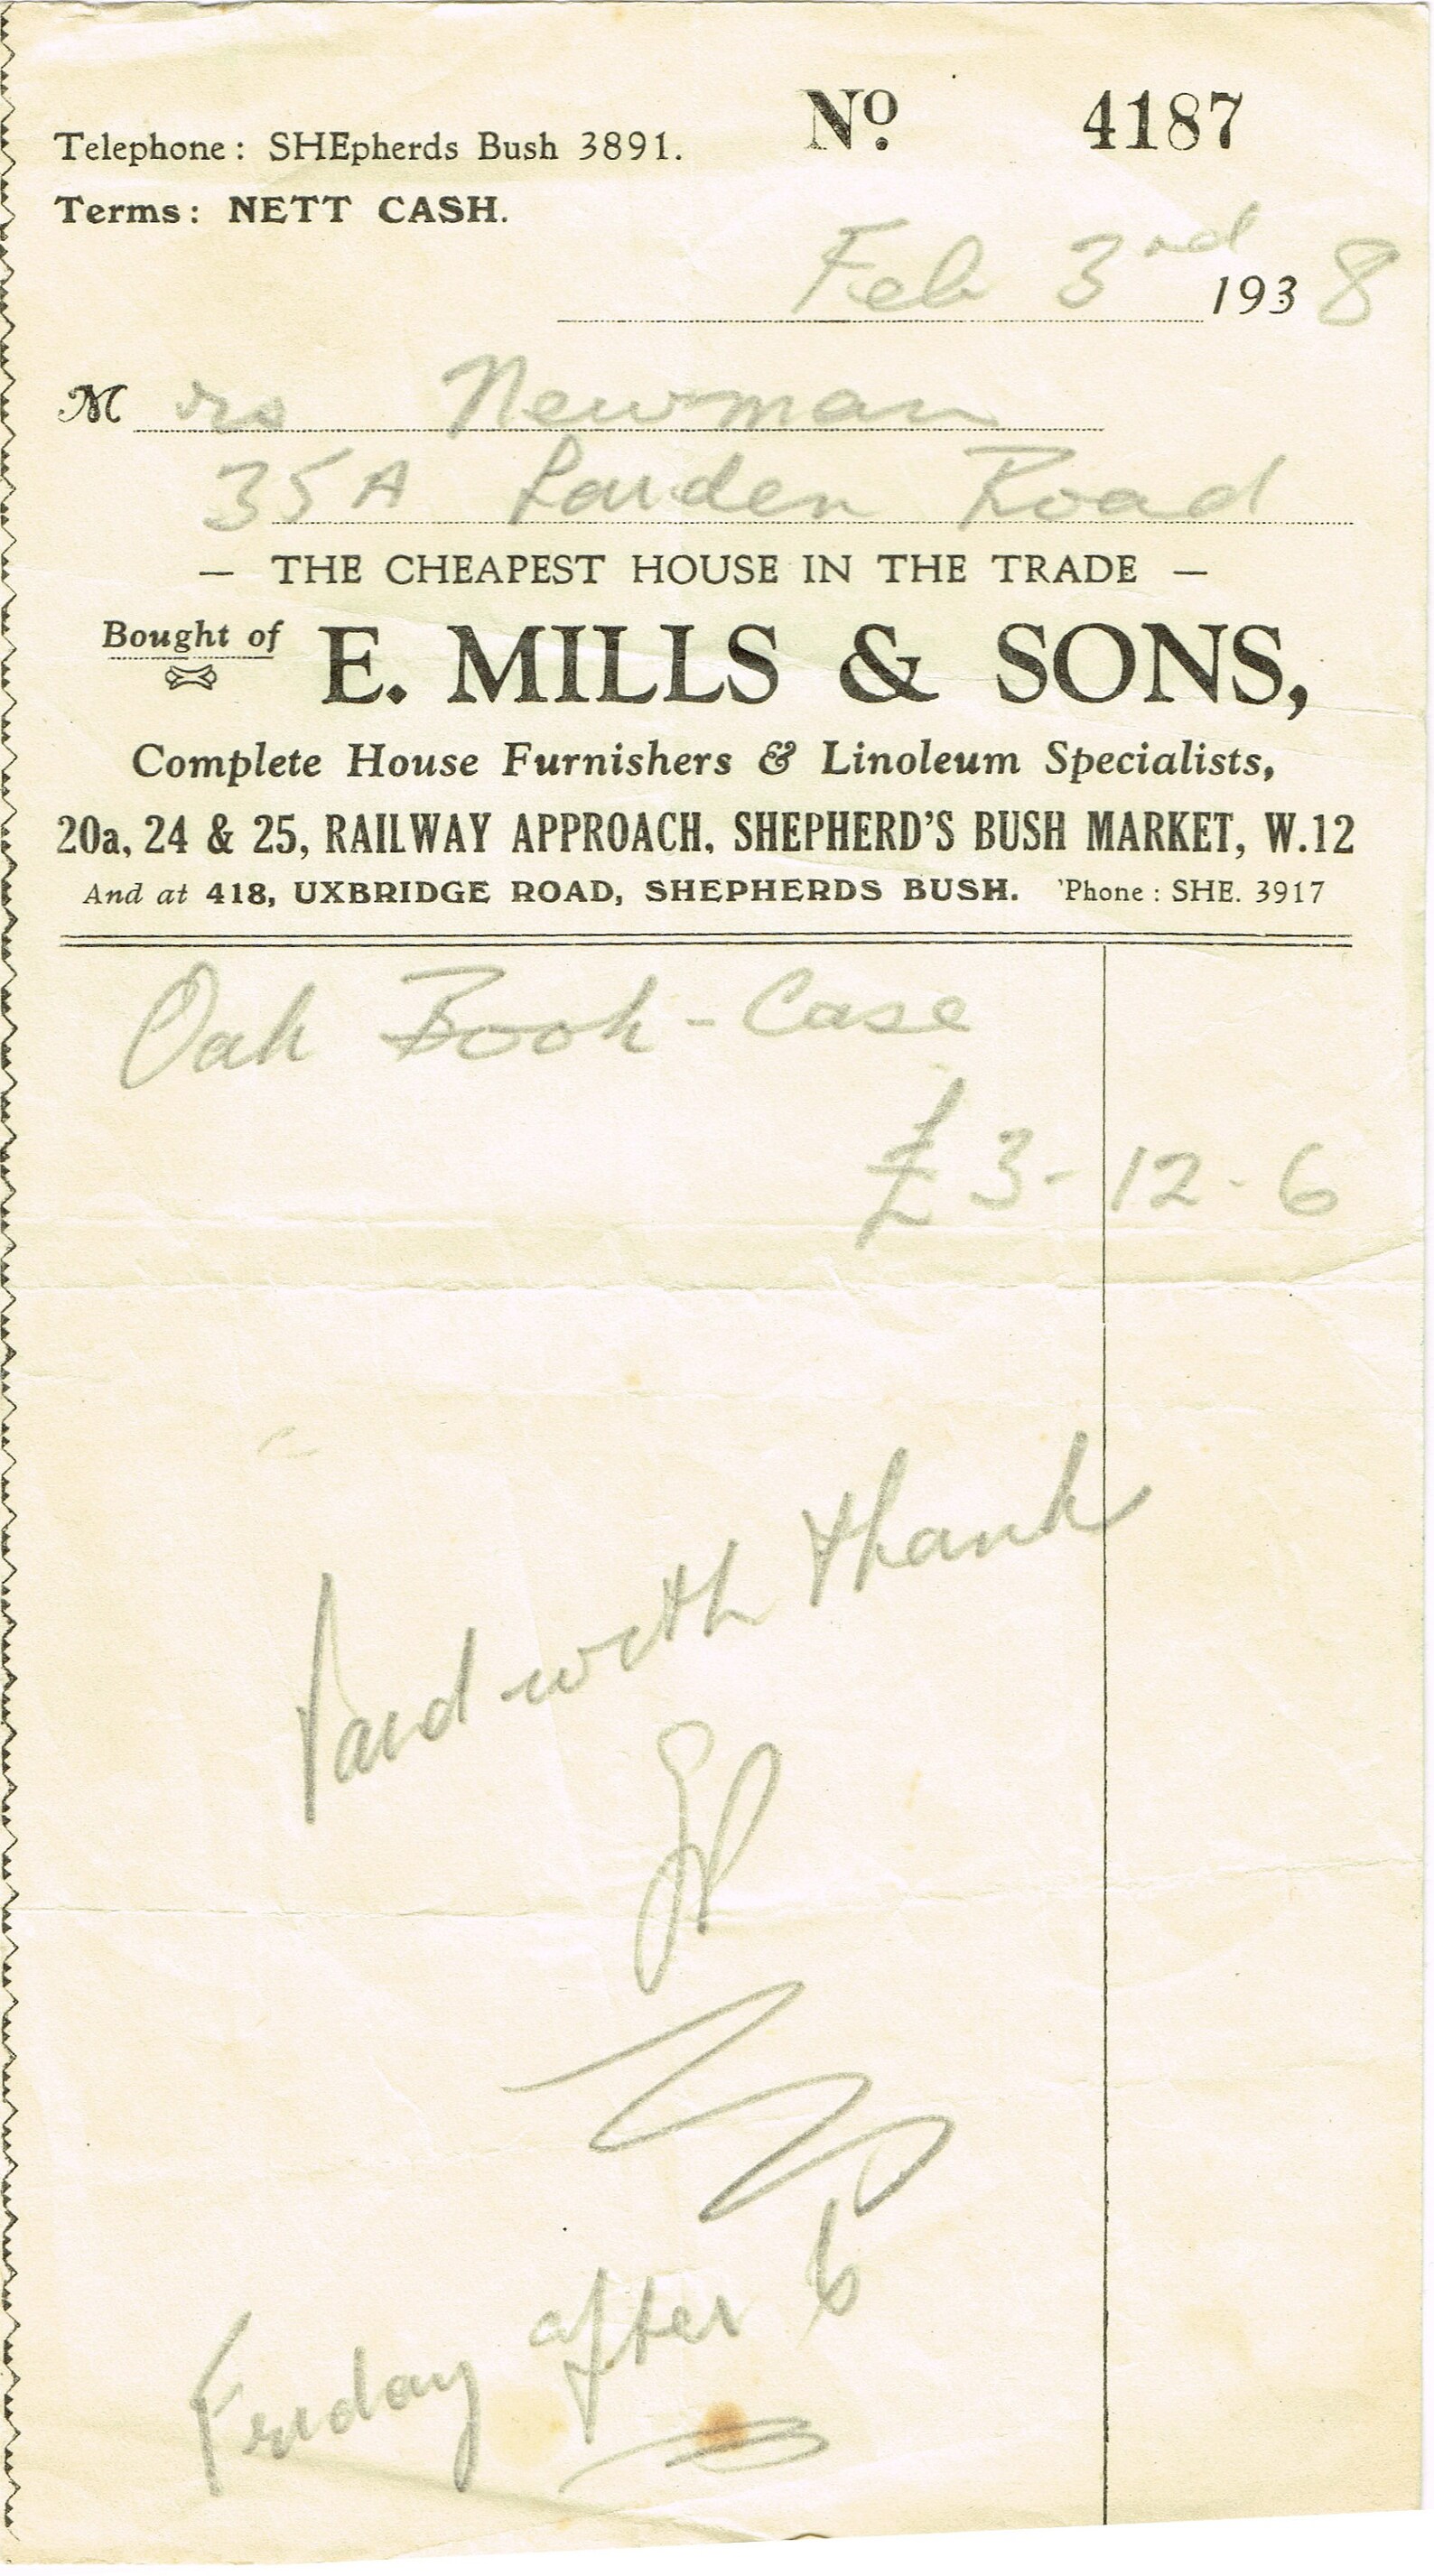 Nº 4187
Telephone: SHEpherds Bush 3891.
Terms: NETT CASH.
Feb 3rd 1938
Mrs Newman
35A Larden Road
— THE CHEAPEST HOUSE IN THE TRADE —
Bought of E. MILLS & SONS,
Complete House Furnishers & Linoleum Specialists,
20a, 24 & 25, RAILWAY APPROACH, SHEPHERD'S BUSH MARKET, W.12
And at 418, UXBRIDGE ROAD, SHEPHERDS BUSH. 'Phone: SHE. 3917
Oak Book-Case
£3-12-6
Paid with thanks
Friday after 6